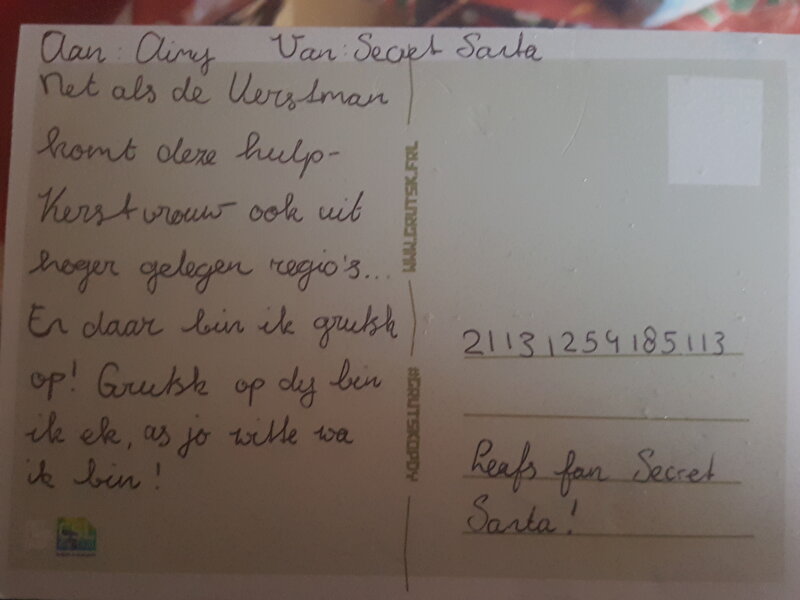 Aan: Ainy Van: Secret Santa
Net als de Kerstman
komt deze hulp-
Kerstvrouw ook uit
hoger gelegen regio's...
En daar bin ik grutsk
op! Grutsk op dy bin
ik ek, as jo witte wa
ik bin!
WWW.GRUTSK.FRL
#GRUTSKOPDY
21131259185113
Leafs fan Secret
Santa!